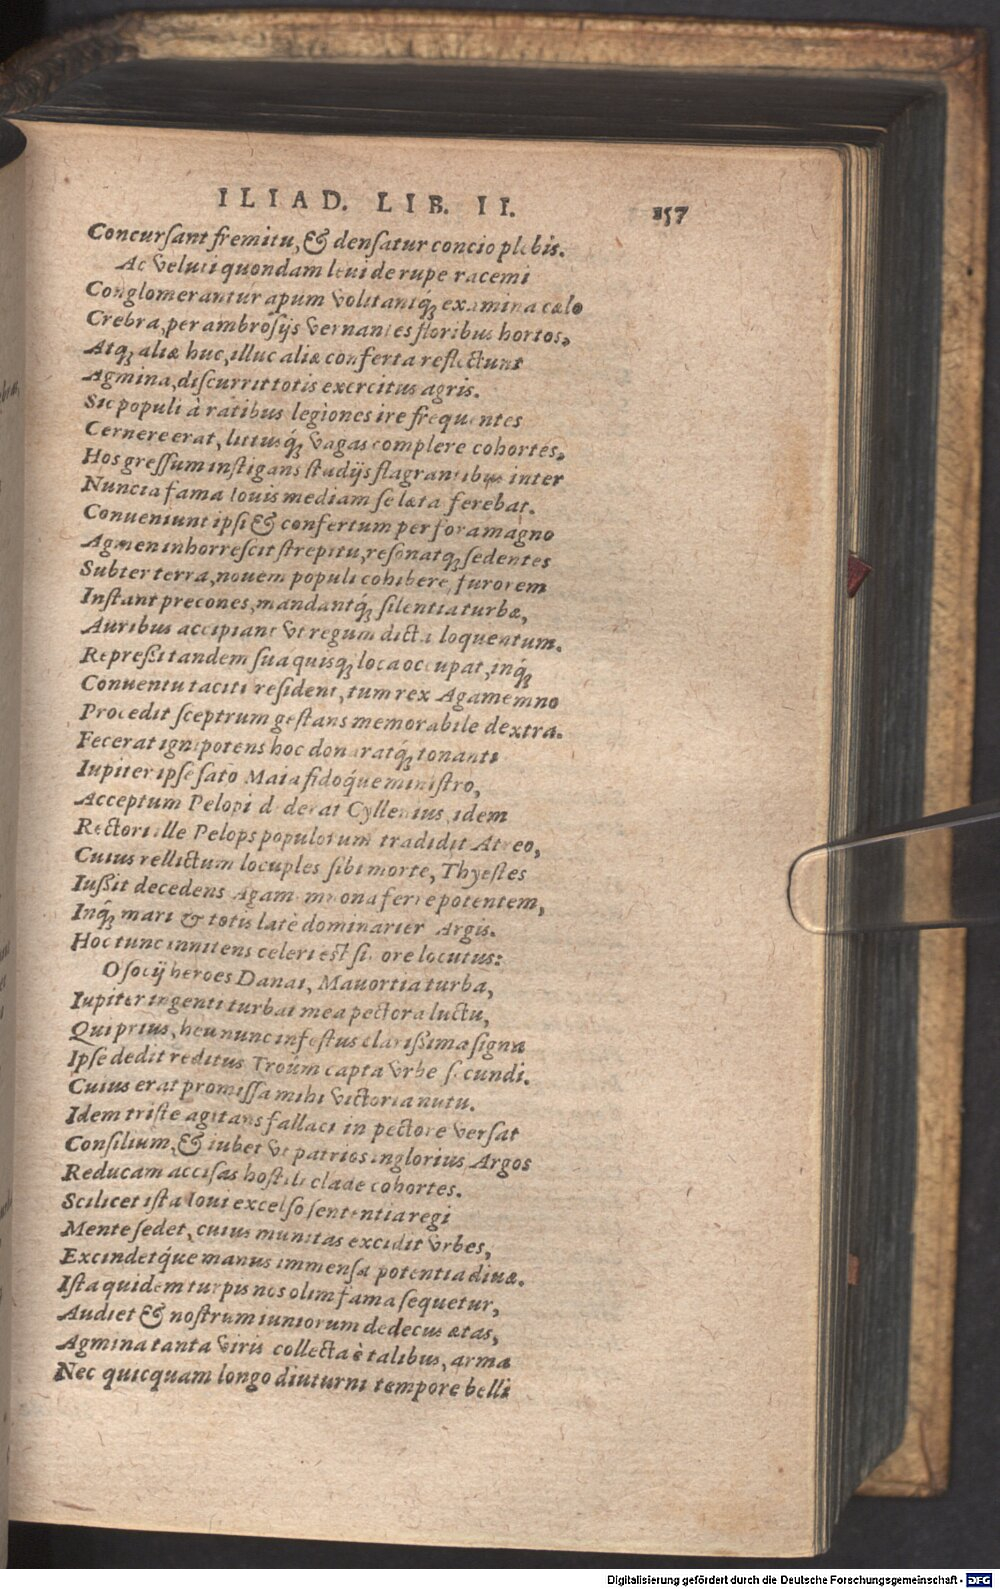 ILIAD. LIB. II. 157
Concursant fremitu, & densatur concio plebis.
Ac veluti quondam leui de rupe racemi
Conglomerantur apum volitantq́; examina cælo
Crebra, per ambrosijs vernantes floribus hortos,
Atq; aliæ huc, illuc aliæ conferta reflectunt
Agmina, discurrit totis exercitus agris.
Sic populi à ratibus legiones ire frequentes
Cernere erat, littusq́; vagas complere cohortes,
Hos gressum instigans studijs flagrantibus inter
Nuncia fama Iouis mediam se læta ferebat.
Conueniunt ipsi & confertum per fora magno
Agmen inhorrescit strepitu, resonatq; sedentes
Subter terra, nouem populi cohibere furorem
Instant precones, mandantq́; silentia turbæ,
Auribus accipiant vt regum dicta loquentum.
Repreßi tandem sua quisq; loca occupat, inq́;
Conuentu taciti resident, tum rex Agamemno
Procedit sceptrum gestans memorabile dextra.
Fecerat ignipotens hoc donaratq; tonanti
Iupiter ipse sato Maia fidoq́ue ministro,
Acceptum Pelopi dederat Cyllenius, idem
Rectori ille Pelops populorum tradidit Atreo,
Cuius rellictum locuples sibi morte, Thyestes
Iußit decedens Agamemnona ferre potentem,
Inq́; mari & totis latè dominarier Argis.
Hoc tunc innitens celeri est sic ore locutus:
O socij heroes Danai, Mauortia turba,
Iupiter ingenti turbat mea pectora luctu,
Qui prius, heu nunc infestus clarißima signa
Ipse dedit reditus Troûm capta vrbe secundi.
Cuius erat promissa mihi victoria nutu.
Idem triste agitans fallaci in pectore versat
Consilium, & iubet vt patrios inglorius Argos
Reducam accisas hostili clade cohortes.
Scilicet ista Ioui excelso sententia regi
Mente sedet, cuius munitas excidit vrbes,
Excindetq́ue manus immensa potentia diuæ.
Ista quidem turpis nos olim fama sequetur,
Audiet & nostrum iuniorum dedecus ætas,
Agmina tanta viris collecta è talibus, arma
Nec quicquam longo diuturni tempore belli
Digitalisierung gefördert durch die Deutsche Forschungsgemeinschaft - DFG